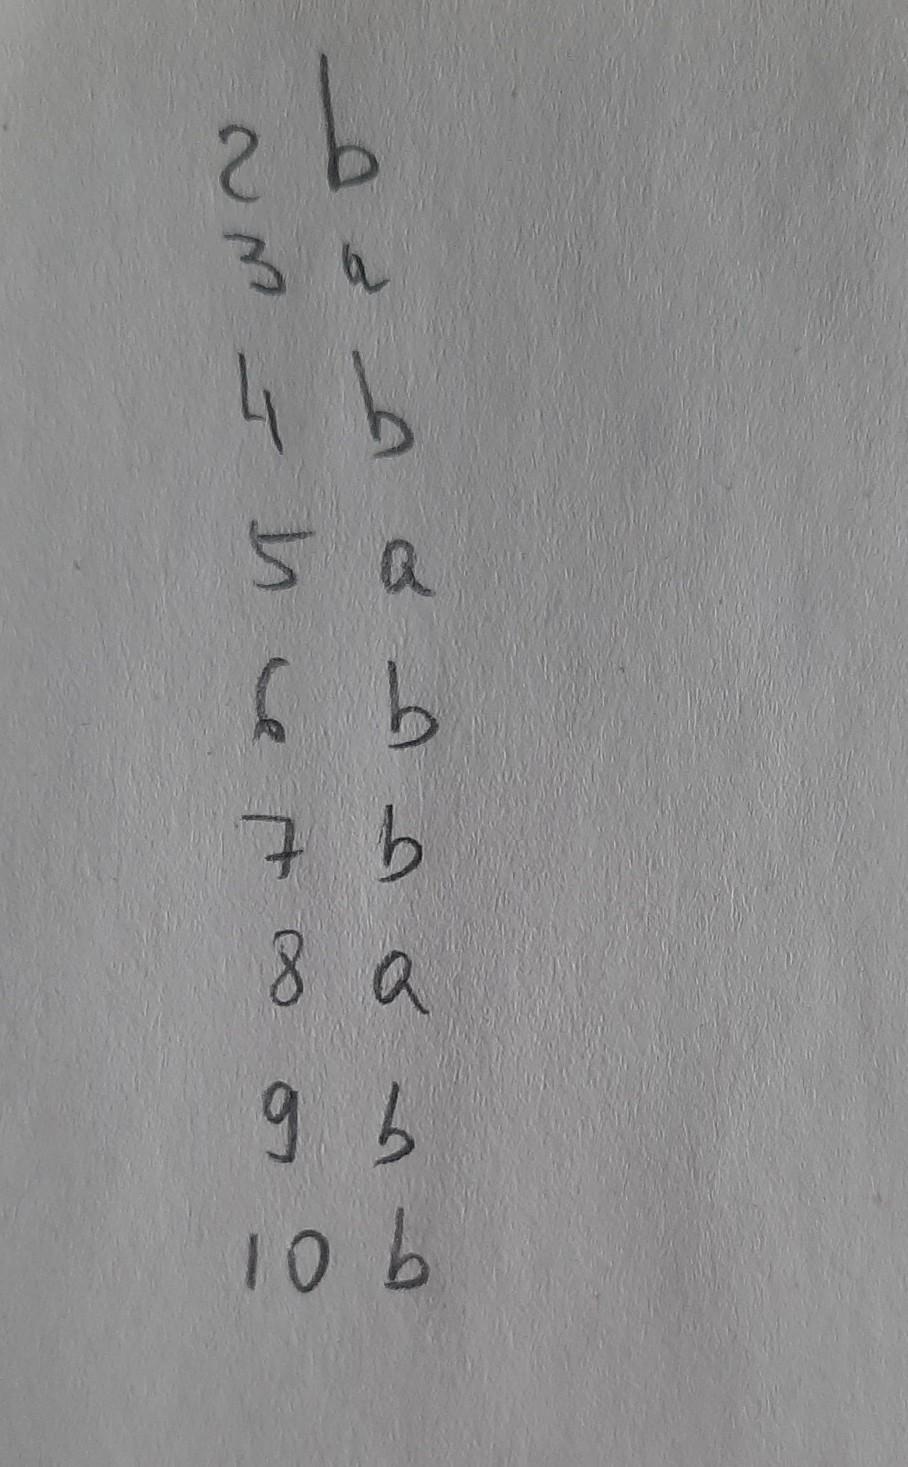 2 b
3 a
4 b
5 a
6 b
7 b
8 a
9 b
10 b